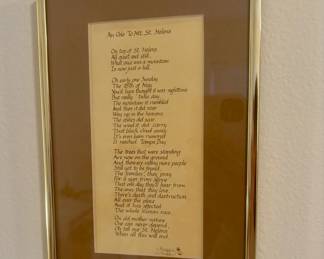 An Ode To Mt. St. Helens
On top of St. Helens
All quiet and still,
What once was a mountain
Is now just a hill.
On early one Sunday
The 18th of May
You'd have thought it was nighttime
But really 'twas day.
The mountain it rumbled
And then it did roar
Way up in the heavens
The ashes did soar.
The wind it did carry
That black cloud away
It's even been rumored
It reached Tampa Bay
The trees that were standing
Are now on the ground
And there're many more people
Still yet to be found.
The families, they pray
For a sign from above
That one day they'll hear from
The ones that they love.
There's death and destruction
All over the place
And it has affected
The whole human race.
On old mother nature
One can never depend,
Oh tell me St. Helens
When all this will end.